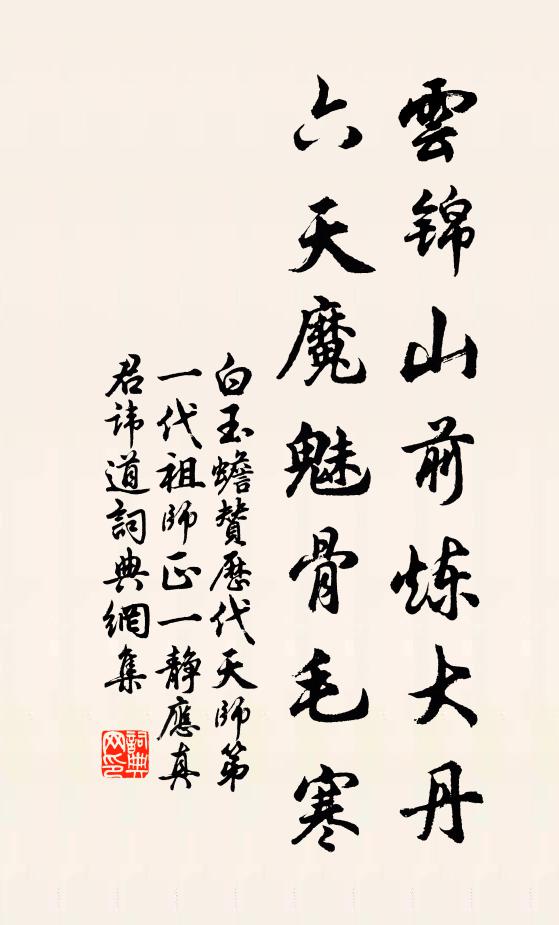 雲锦山前炼大丹
六天魔魅骨毛寒
白玉蟾赞历代天师第
一代祖师正一静應真
君讳道詞典網集
詞典
网印